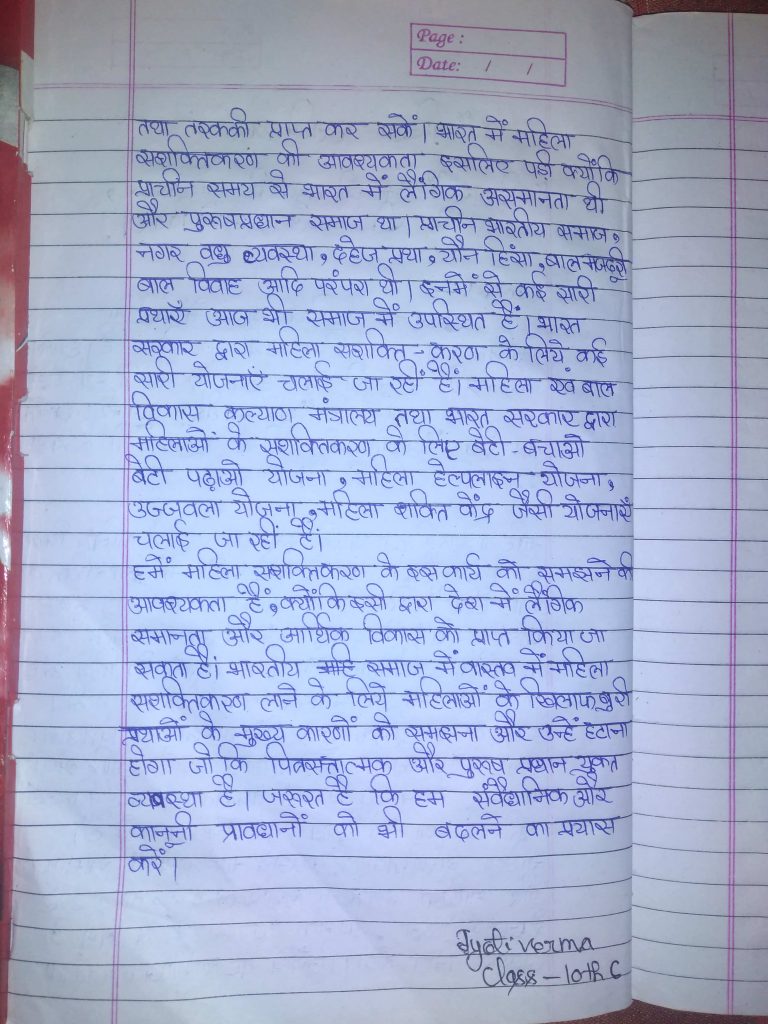 Page :
Date: / /
तथा तरक्की प्राप्त कर सकें। भारत में महिला
सशक्तिकरण की आवश्यकता इसलिए पड़ी क्योंकि
प्राचीन समय से भारत में लैंगिक असमानता थी
और पुरूषप्रधान समाज था। प्राचीन भारतीय समाज,
नगर वधु व्यवस्था, दहेज प्रथा, यौन हिंसा, बाल मजदूरी
बाल विवाह आदि परंपरा थी। इनमें से कई सारी
प्रथाएँ आज भी समाज में उपस्थित हैं। भारत
सरकार द्वारा महिला सशक्ति-करण के लिये कई
सारी योजनाएं चलाई जा रहीं हैं। महिला एवं बाल
विकास कल्याण मंत्रालय तथा भारत सरकार द्वारा
महिलाओं के सशक्तिकरण के लिए बेटी-बचाओ
बेटी पढ़ाओ योजना, महिला हेल्पलाइन योजना,
उज्जवला योजना, महिला शक्ति केंद्र जैसी योजनाएँ
चलाई जा रहीं हैं।
हमें महिला सशक्तिकरण के इस कार्य को समझने की
आवश्यकता हैं, क्योंकि इसी द्वारा देश में लैंगिक
समानता और आर्थिक विकास को प्राप्त किया जा
सकता है। भारतीय समाज में वास्तव में महिला
सशक्तिकरण लाने के लिये महिलाओं के खिलाफ बुरी
प्रथाओं के मुख्य कारणों को समझना और उन्हें हटाना
होगा जो कि पितृसत्तात्मक और पुरूष प्रधान युक्त
व्यवस्था है। जरूरत है कि हम संवैधानिक और
कानूनी प्रावधानों को भी बदलने का प्रयास
करें।
Jyoti verma
Class-10th C